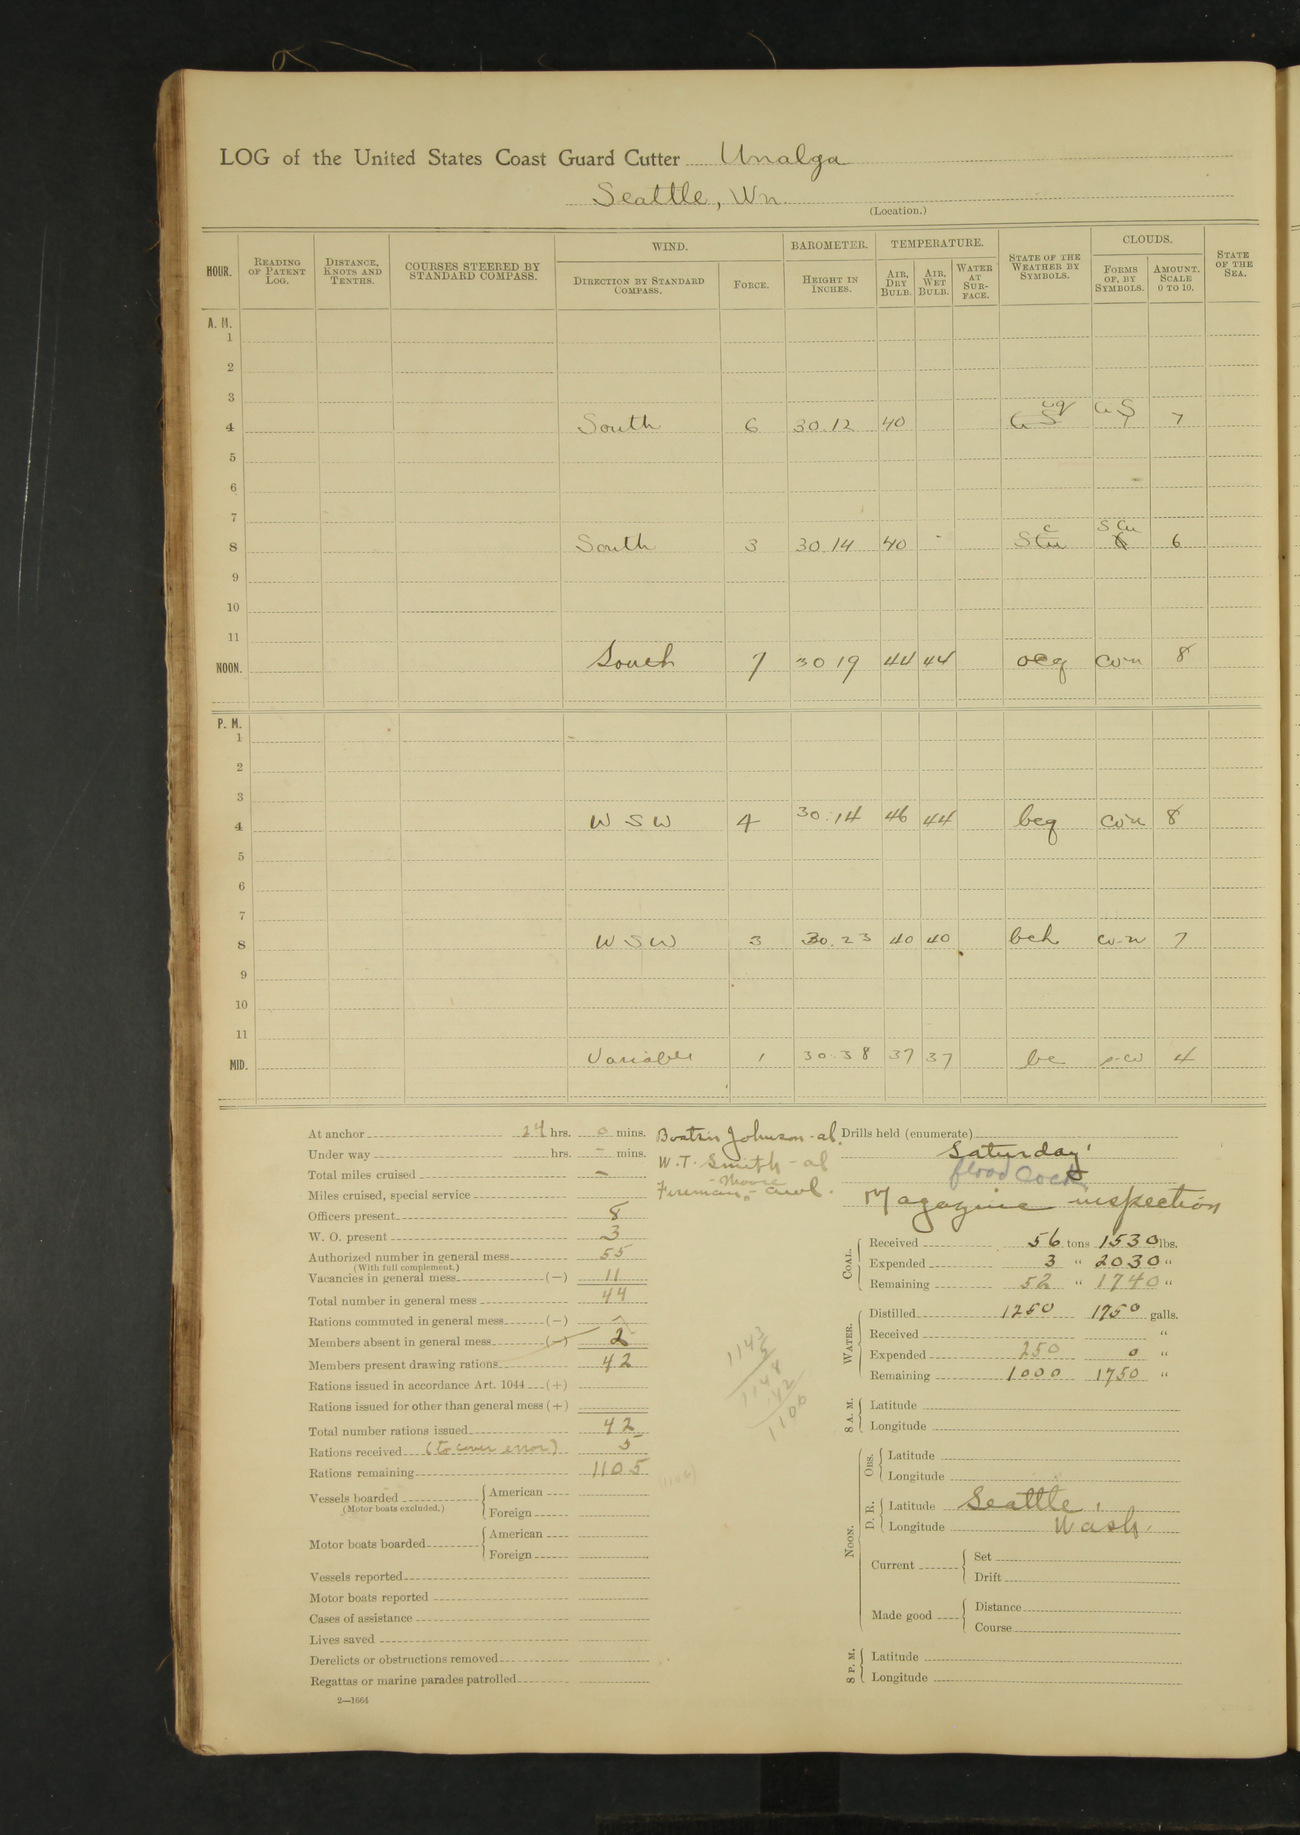 LOG of the United States Coast Guard Cutter Unalga
Seattle, Wn.
(Location.)
HOUR. READING OF PATENT LOG. DISTANCE, KNOTS AND TENTHS. COURSES STEERED BY STANDARD COMPASS. WIND. DIRECTION BY STANDARD COMPASS. FORCE. BAROMETER. HEIGHT IN INCHES. TEMPERATURE. AIR, DRY BULB. AIR, WET BULB. WATER AT SURFACE. STATE OF THE WEATHER BY SYMBOLS. CLOUDS. FORMS OF, BY SYMBOLS. AMOUNT. SCALE 0 TO 10. STATE OF THE SEA.
A. M.
1
2
3
4 South 6 30.12 40 7
5
6
7
8 South 3 30 14 40 S Cu 6
9
10
11
NOON. South 7 30 19 44 44 ocq cu-n 8
P. M.
1
2
3
4 W S W 4 30.14 46 44 bcq cu-n 8
5
6
7
8 W S W 3 30.23 40 40 bch cu-n 7
9
10
11
MID. Variable 1 30.38 37 37 bc s-cu 4
At anchor 24 hrs. 0 mins.
Under way hrs. – mins.
Total miles cruised –
Miles cruised, special service
Officers present 8
W. O. present 3
Authorized number in general mess 55
(With full complement.)
Vacancies in general mess (—) 11
Total number in general mess 44
Rations commuted in general mess (—)
Members absent in general mess (—) 2
Members present drawing rations 42
Rations issued in accordance Art. 1044 (+)
Rations issued for other than general mess (+)
Total number rations issued 42
Rations received (to cover error) 5
Rations remaining 1105 (1106)
Vessels boarded American
(Motor boats excluded.) Foreign
Motor boats boarded American
Foreign
Vessels reported
Motor boats reported
Cases of assistance
Lives saved
Derelicts or obstructions removed
Regattas or marine parades patrolled
2—1664
Boatsn Johnson - al.
W. T. Smith - al
Fireman Moore - awl.
1143
5
1148
42
1106
Drills held (enumerate)
Saturday
flood cock
Magazine inspection
COAL. Received 56 tons 1530 lbs.
Expended 3 " 2030 "
Remaining 52 " 1740 "
WATER. Distilled 1250 1750 galls.
Received "
Expended 250 0 "
Remaining 1000 1750 "
8 A. M. Latitude
Longitude
NOON. OBS. Latitude
Longitude
D. R. Latitude Seattle,
Longitude Wash.
Current Set
Drift
Made good Distance
Course
8 P. M. Latitude
Longitude